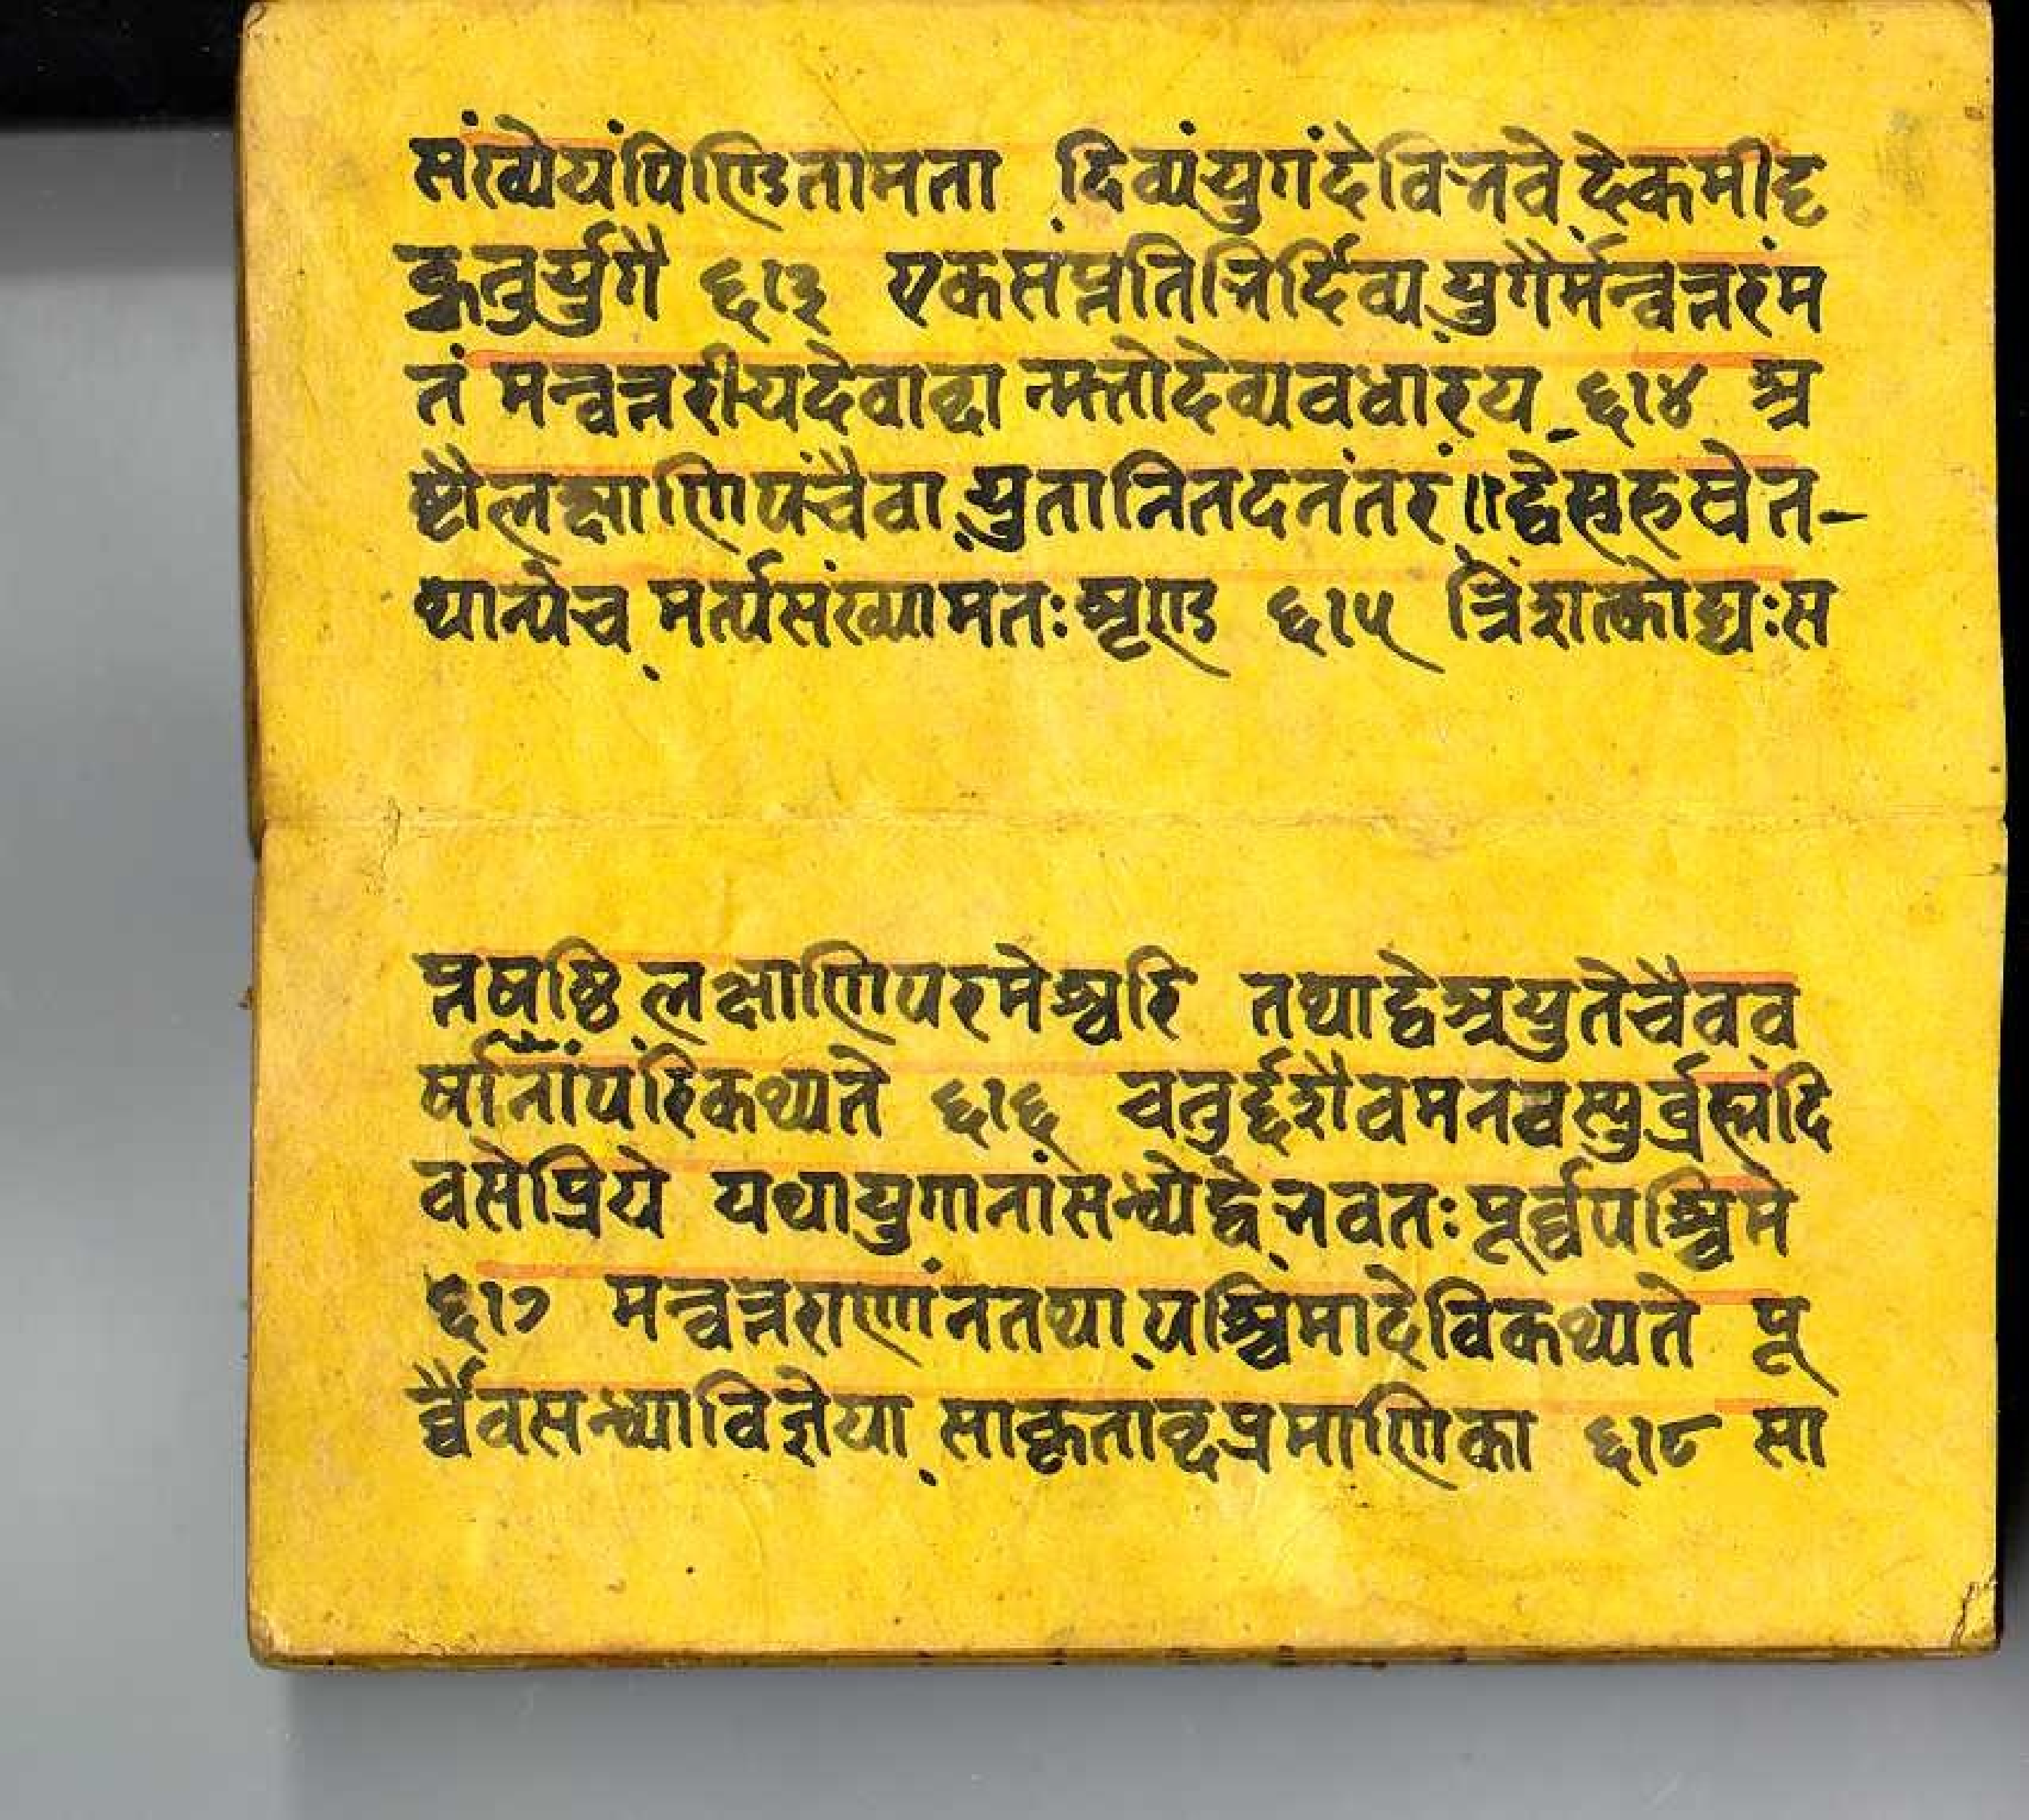 संख्येयंपिण्डितामता दिव्यंयुगंदेविभवेदेकमीदृ
क्चतुर्युगै ६१३ एकसंप्ततिभिर्दिव्ययुगैर्मन्वन्तरंम
तं मन्वन्तरीयदेवाब्दा न्मत्तोदेव्यवधारय ६१४ अ
ष्टौलक्षाणिपंचैवा युतानितदनंतरं॥द्वेसहस्रेत-
थान्येच मर्त्यसंख्यामतःशृणु ६१५ त्रिंशत्कोट्यःस
प्तषष्ठिलक्षाणिपरमेश्वरि तथाद्वेअयुतेचैवव
र्षानांपरिकथ्यते ६१६ चतुर्द्दशैवमनवस्तुर्ब्रह्मंदि
वसेप्रिये यथायुगानांसन्ध्येद्वेभवतःपूर्व्वपश्चिमे
६१७ मन्वन्तराणांनतथा पश्चिमादेविकथ्यते पू
र्व्वैवसन्ध्याविज्ञेया साकृताब्दप्रमाणिका ६१८ सा